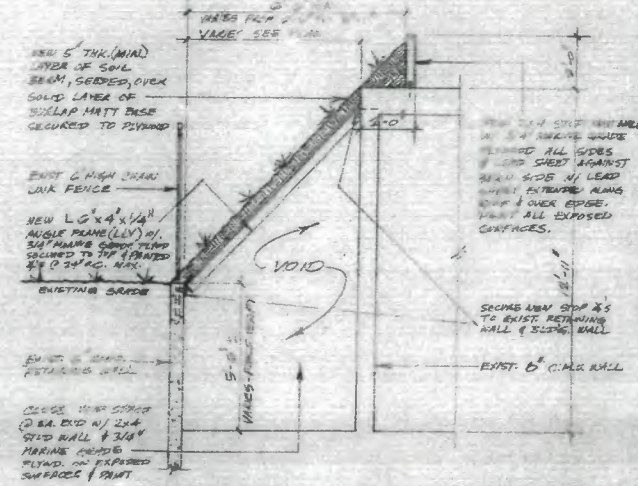 VARIES FROM
VARIES SEE PLAN
NEW 5" THK. (MIN.)
LAYER OF SOIL
BERM, SEEDED, OVER
SOLID LAYER OF
BURLAP MATT BASE
SECURED TO PLYWOOD
EXIST 6' HIGH CHAIN
LINK FENCE
NEW L 6"x4"x1/4"
ANGLE FRAME (LLV) W/
3/4" MARINE GRADE PLYWD
SECURED TO TOP & PAINTED
@ 24" O.C. MAX.
EXISTING GRADE
EXIST. 8" CONC.
RETAINING WALL
CLOSE VOID SPACE
@ EA. END W/ 2x4
STUD WALL & 3/4"
MARINE GRADE
PLYWD. ON EXPOSED
SURFACES & PAINT
VOID
VARIES-FIELD VERIFY
2'-0
2'-0
12'-11"
2x4 STUD
W/ 3/4" MARINE GRADE
PLYWOOD ALL SIDES
& LEAD SHEET AGAINST
BERM SIDE W/ LEAD
SHEET EXTENDED ALONG
& OVER EDGE.
PAINT ALL EXPOSED
SURFACES.
SECURE NEW
TO EXIST. RETAINING
WALL & BLDG. WALL
EXIST. 8" C.M.U. WALL